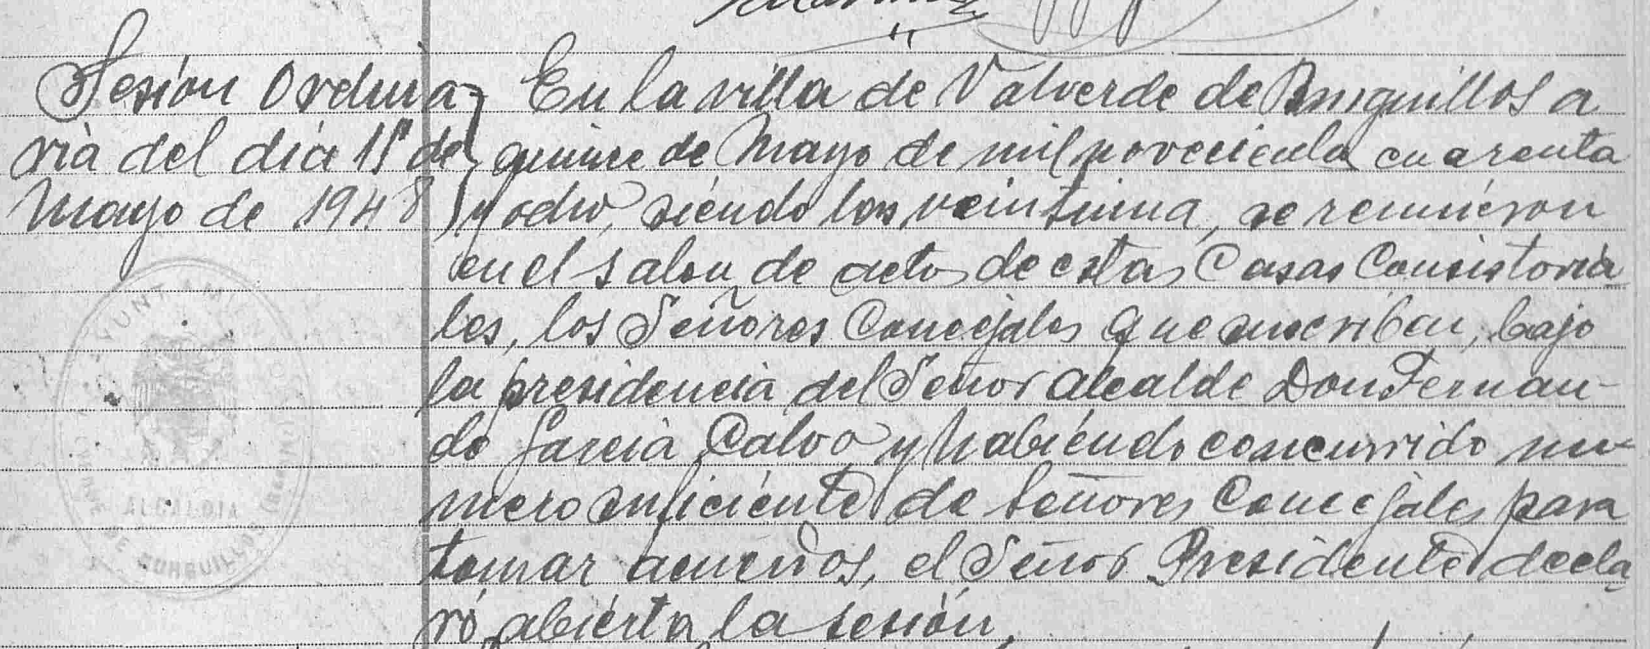 Sesión Ordina-
ria del día 15 de
Mayo de 1948
En la villa de Valverde de Burguillos a
quince de Mayo de mil novecientos cuarenta
y ocho, siendo las veintiuna, se reunieron
en el salon de actos de estas Casas Consistoria
les, los Señores Concejales que suscriben, bajo
la presidencia del Señor Alcalde Don Fernan-
do García Calvo y habiendo concurrido nu-
mero suficiente de Señores Concejales para
tomar acuerdos, el Señor Presidente decla-
ró abierta la sesión.
ALCALDIA
DE BURGUILLOS